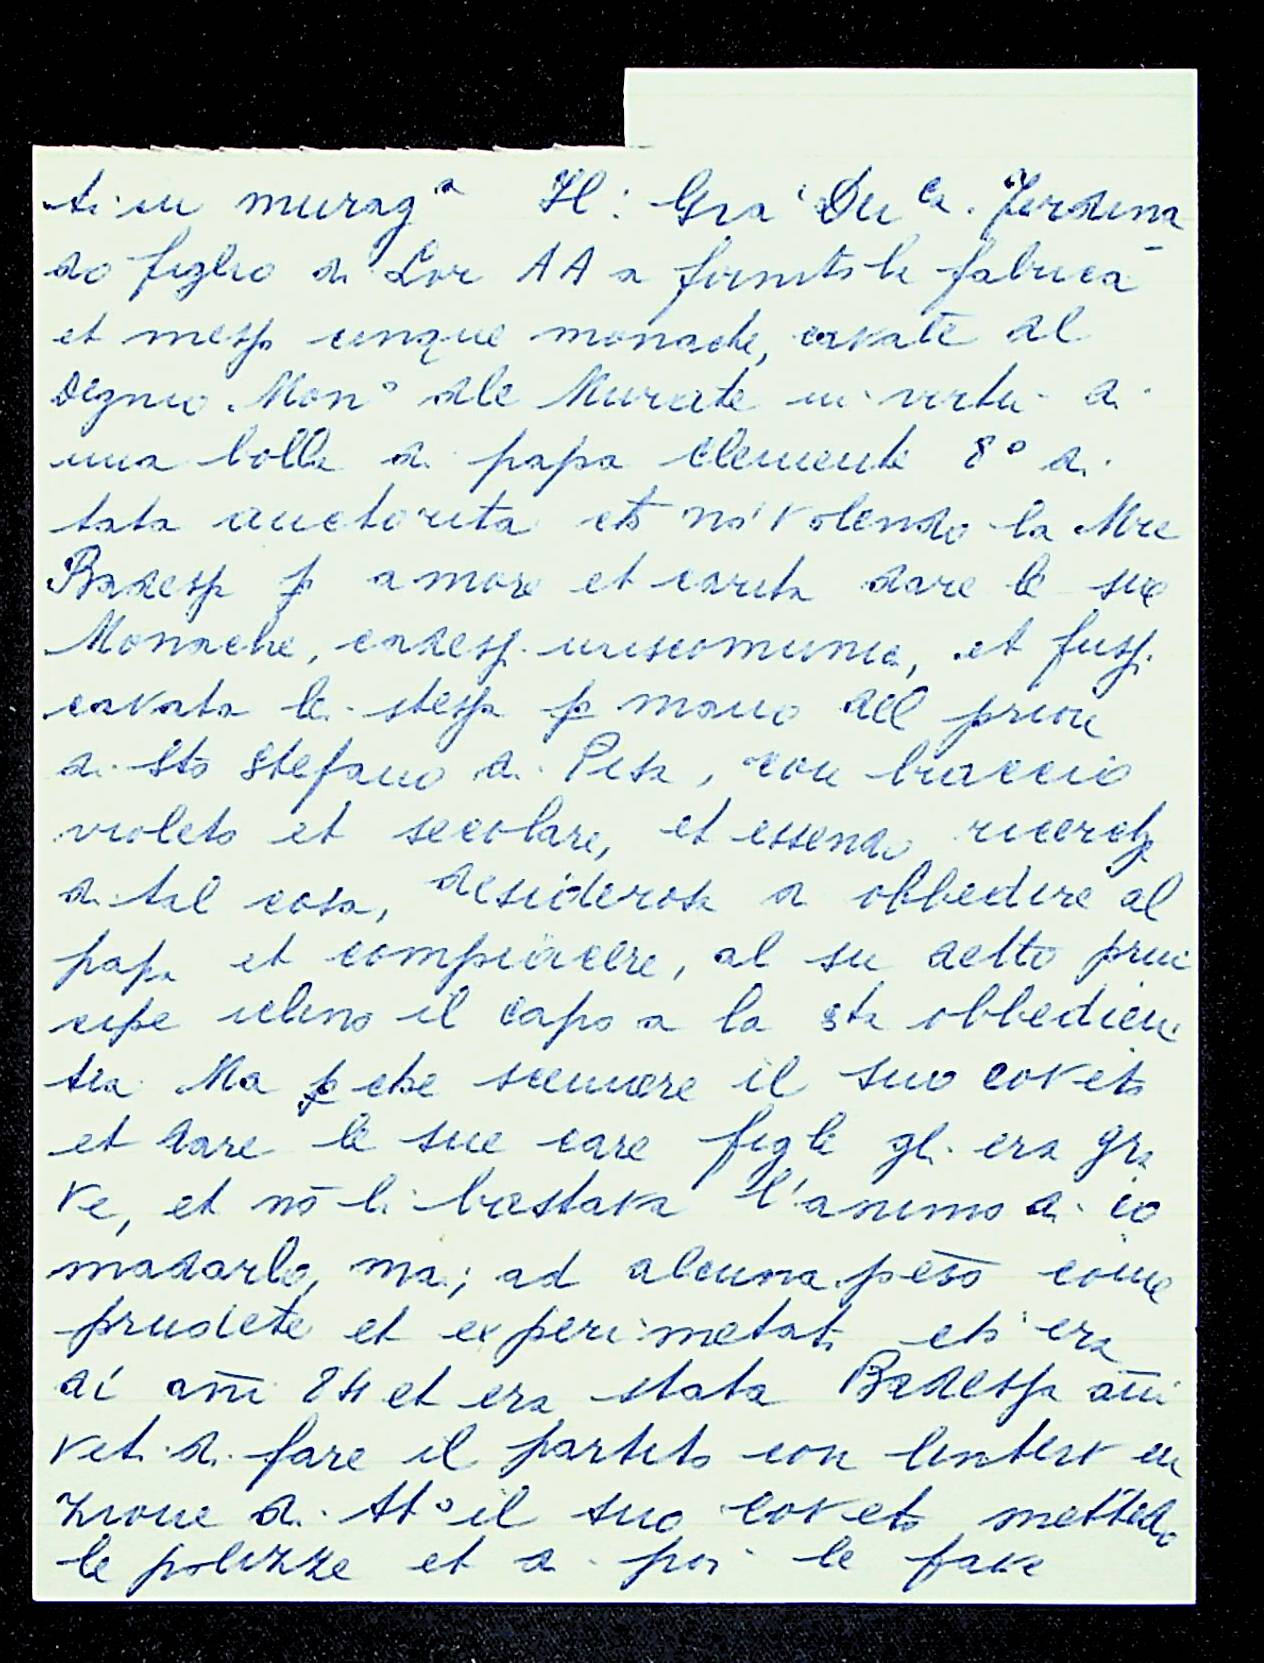 ti in muragª Il: Gra Duca. Ferdina
do figlio di Lor AA a fornito la fabrica
et messo cinque monache, cavate al
Degnio. Monº dle Murate in virtu di
una bolla di papa Clemente 8º di
tata auctorita eto nō volendo la Mre
Badessa p amore et carita dare le sue
Monache, cadessi iniscomunica, et fussi
cavata la stessa p mano dell priore
di Sto Stefano di Pisa, con braccio
violeto et secolare, et essendo ricercha
di tal cosa, desiderosa di obbedire al
papa et compiacere, al su detto prin
cipe iclino il capo a la sta obbedien
tia Ma p che scemare il suo coveto
et dare le sue care figle gli era gra
ve, et nō li bastava l'animo di co
madarlo, ma; ad alcuna pesō come
prudete et experimetata eto era
di ani 84 et era stata Badessa ani
veti di fare il partito con linterven
zione di Stº il suo coveto mettedo
le polizze et di poi le fave